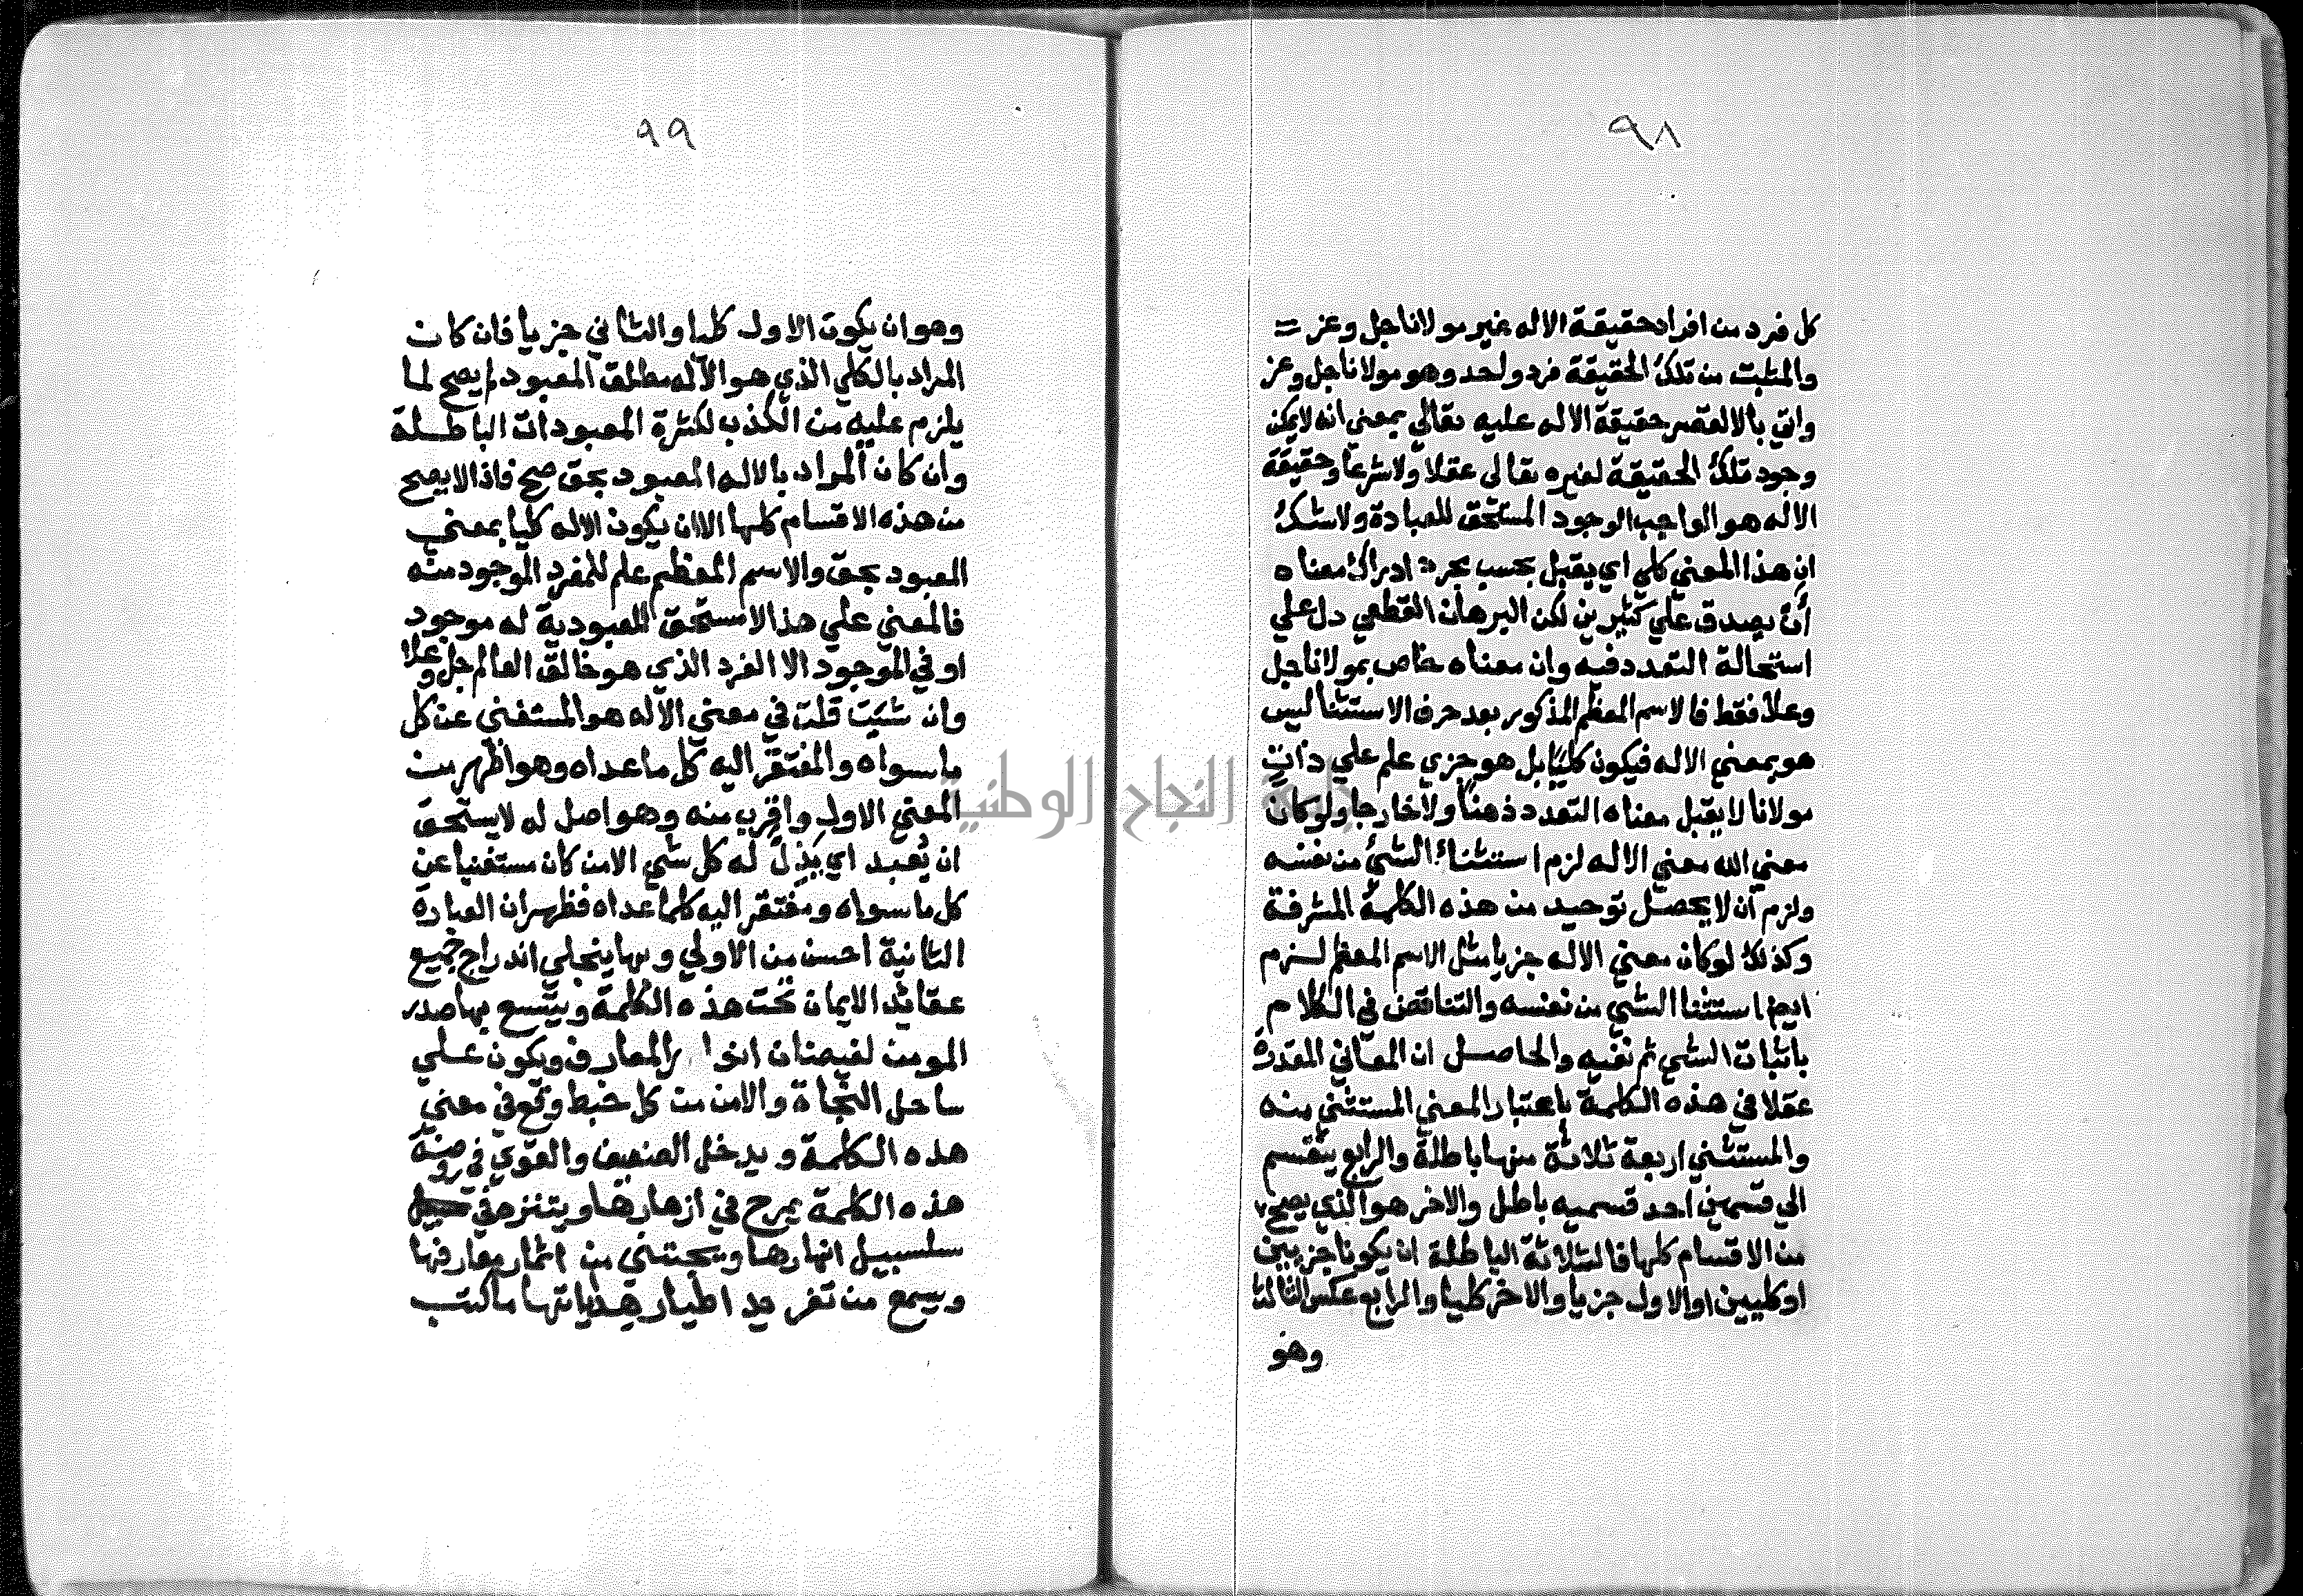 ٩٨
كل فرد من افراد حقيقة الاله غير مولانا جل وعز =
والمثبت من تلك الحقيقة فرد واحد وهو مولانا جل وعز
واتي بالا لقصر حقيقة الاله عليه تعالي بمعني انه لا يمكن
وجود تلك الحقيقة لغيره تعالى عقلا ولا شرعا وحقيقة
الاله هو الواجب الوجود المستحق للعبادة ولا شك
ان هذا المعني كلي اي يقبل بحسب مجرد ادراك معناه
أن يصدق علي كثيرين لكن البرهان القطعي دل علي
استحالة التعدد فيه وان معناه خاص بمولانا جل
وعلا فقط فالاسم المعظم المذكور بعد حرف الاستثنا ليس
هو بمعني الاله فيكون كليا بل هو جزي علم علي ذات
مولانا لا يقبل معناه التعدد ذهنا ولا خارجا ولو كان
معني الله معني الاله لزم استثناء الشئ من نفسه
ولزم ان لا يحصل توحيد من هذه الكلمة المشرفة
وكذلك لو كان معني الاله جزيا مثل الاسم المعظم لزم
ايضا استثنا الشي من نفسه والتناقض في الكلام
باثبات الشي ثم نفيه والحاصل ان المعاني المقدرة
عقلا في هذه الكلمة باعتبار المعني المستثني منه
والمستثني اربعة ثلاثة منها باطلة والرابع ينقسم
الي قسمين احد قسميه باطل والاخر هو الذي يصح
من الاقسام كلها فالثلاثة الباطلة ان يكونا جزيين
او كليين او الاول جزيا والاخر كليا والرابع عكس الثالث
وهو
٩٩
وهو ان يكون الاول كليا والثاني جزيا فان كان
المراد بالكلي الذي هو الآله مطلق المعبود لم يصح لما
يلزم عليه من الكذب لكثرة المعبودات الباطلة
وان كان المراد بالاله المعبود بحق صح فاذا لا يصح
من هذه الاقسام كلها الا ان يكون الاله كليا بمعني
المعبود بحق والاسم المعظم علم للفرد الموجود منه
فالمعني علي هذا لا مستحق للعبودية له موجود
او في الموجود الا الفرد الذي هو خالق العالم جل وعلا
وان شيت قلت في معني الاله هو المستغني عن كل
ما سواه والمفتقر اليه كل ما عداه وهو اظهر من
المعني الاول واقرب منه وهو اصل له لا يستحق
ان يُعبد اي يذل له كل شي الا من كان مستغنيا عن
كل ما سواه ومفتقر اليه كلما عداه فظهر ان العبارة
الثانية احسن من الاولي وبها ينجلي اندراج جميع
عقائد الايمان تحت هذه الكلمة ويتسع بها صدر
المومن لفيضان المعارف ويكون علي
ساحل النجاة والامن من كل خبط وقع في معني
هذه الكلمة ويدخل الضعيف والقوي في روضة
هذه الكلمة يمرح في ازهارها ويتنزه في
سلسبيل انهارها ويجتني من اثمار معارفها
ويسمع من تغريد اطيار هداياتها ما كتب
جامعة النجاح الوطنية